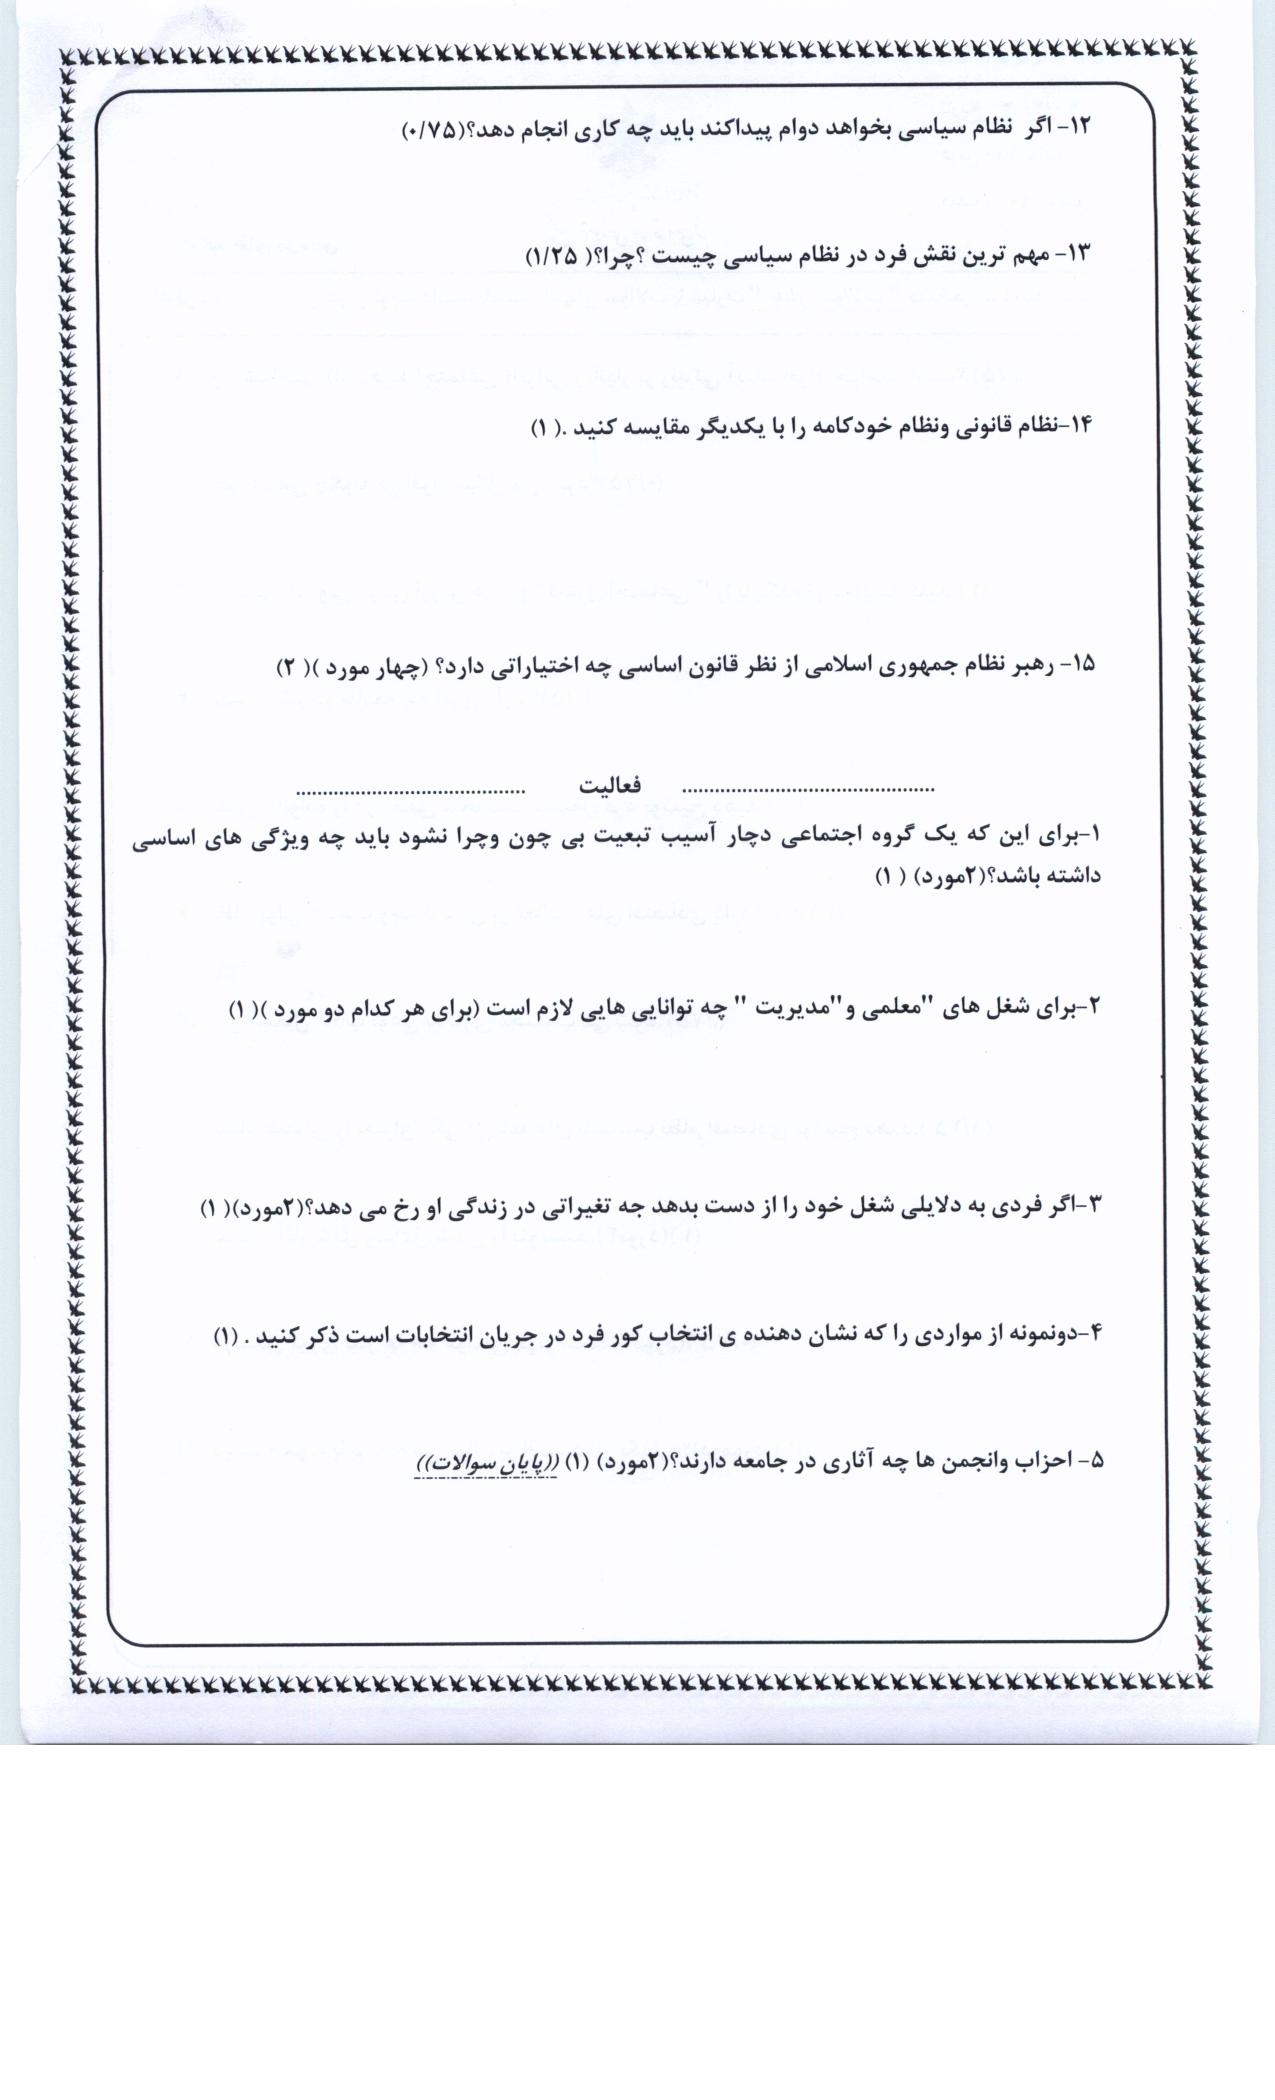 ۱۲- اگر نظام سیاسی بخواهد دوام پیداکند باید چه کاری انجام دهد؟(۰/۷۵)
۱۳- مهم ترین نقش فرد در نظام سیاسی چیست ؟چرا؟( ۱/۲۵)
۱۴-نظام قانونی ونظام خودکامه را با یکدیگر مقایسه کنید .( ۱)
۱۵- رهبر نظام جمهوری اسلامی از نظر قانون اساسی چه اختیاراتی دارد؟ (چهار مورد )( ۲)
............................................ فعالیت ........................................
۱-برای این که یک گروه اجتماعی دچار آسیب تبعیت بی چون وچرا نشود باید چه ویژگی های اساسی
داشته باشد؟(۲مورد) ( ۱)
۲-برای شغل های "معلمی و"مدیریت " چه توانایی هایی لازم است (برای هر کدام دو مورد )( ۱)
۳-اگر فردی به دلایلی شغل خود را از دست بدهد جه تغیراتی در زندگی او رخ می دهد؟(۲مورد)( ۱)
۴-دونمونه از مواردی را که نشان دهنده ی انتخاب کور فرد در جریان انتخابات است ذکر کنید . (۱)
۵- احزاب وانجمن ها چه آثاری در جامعه دارند؟(۲مورد) (۱) ((پایان سوالات))